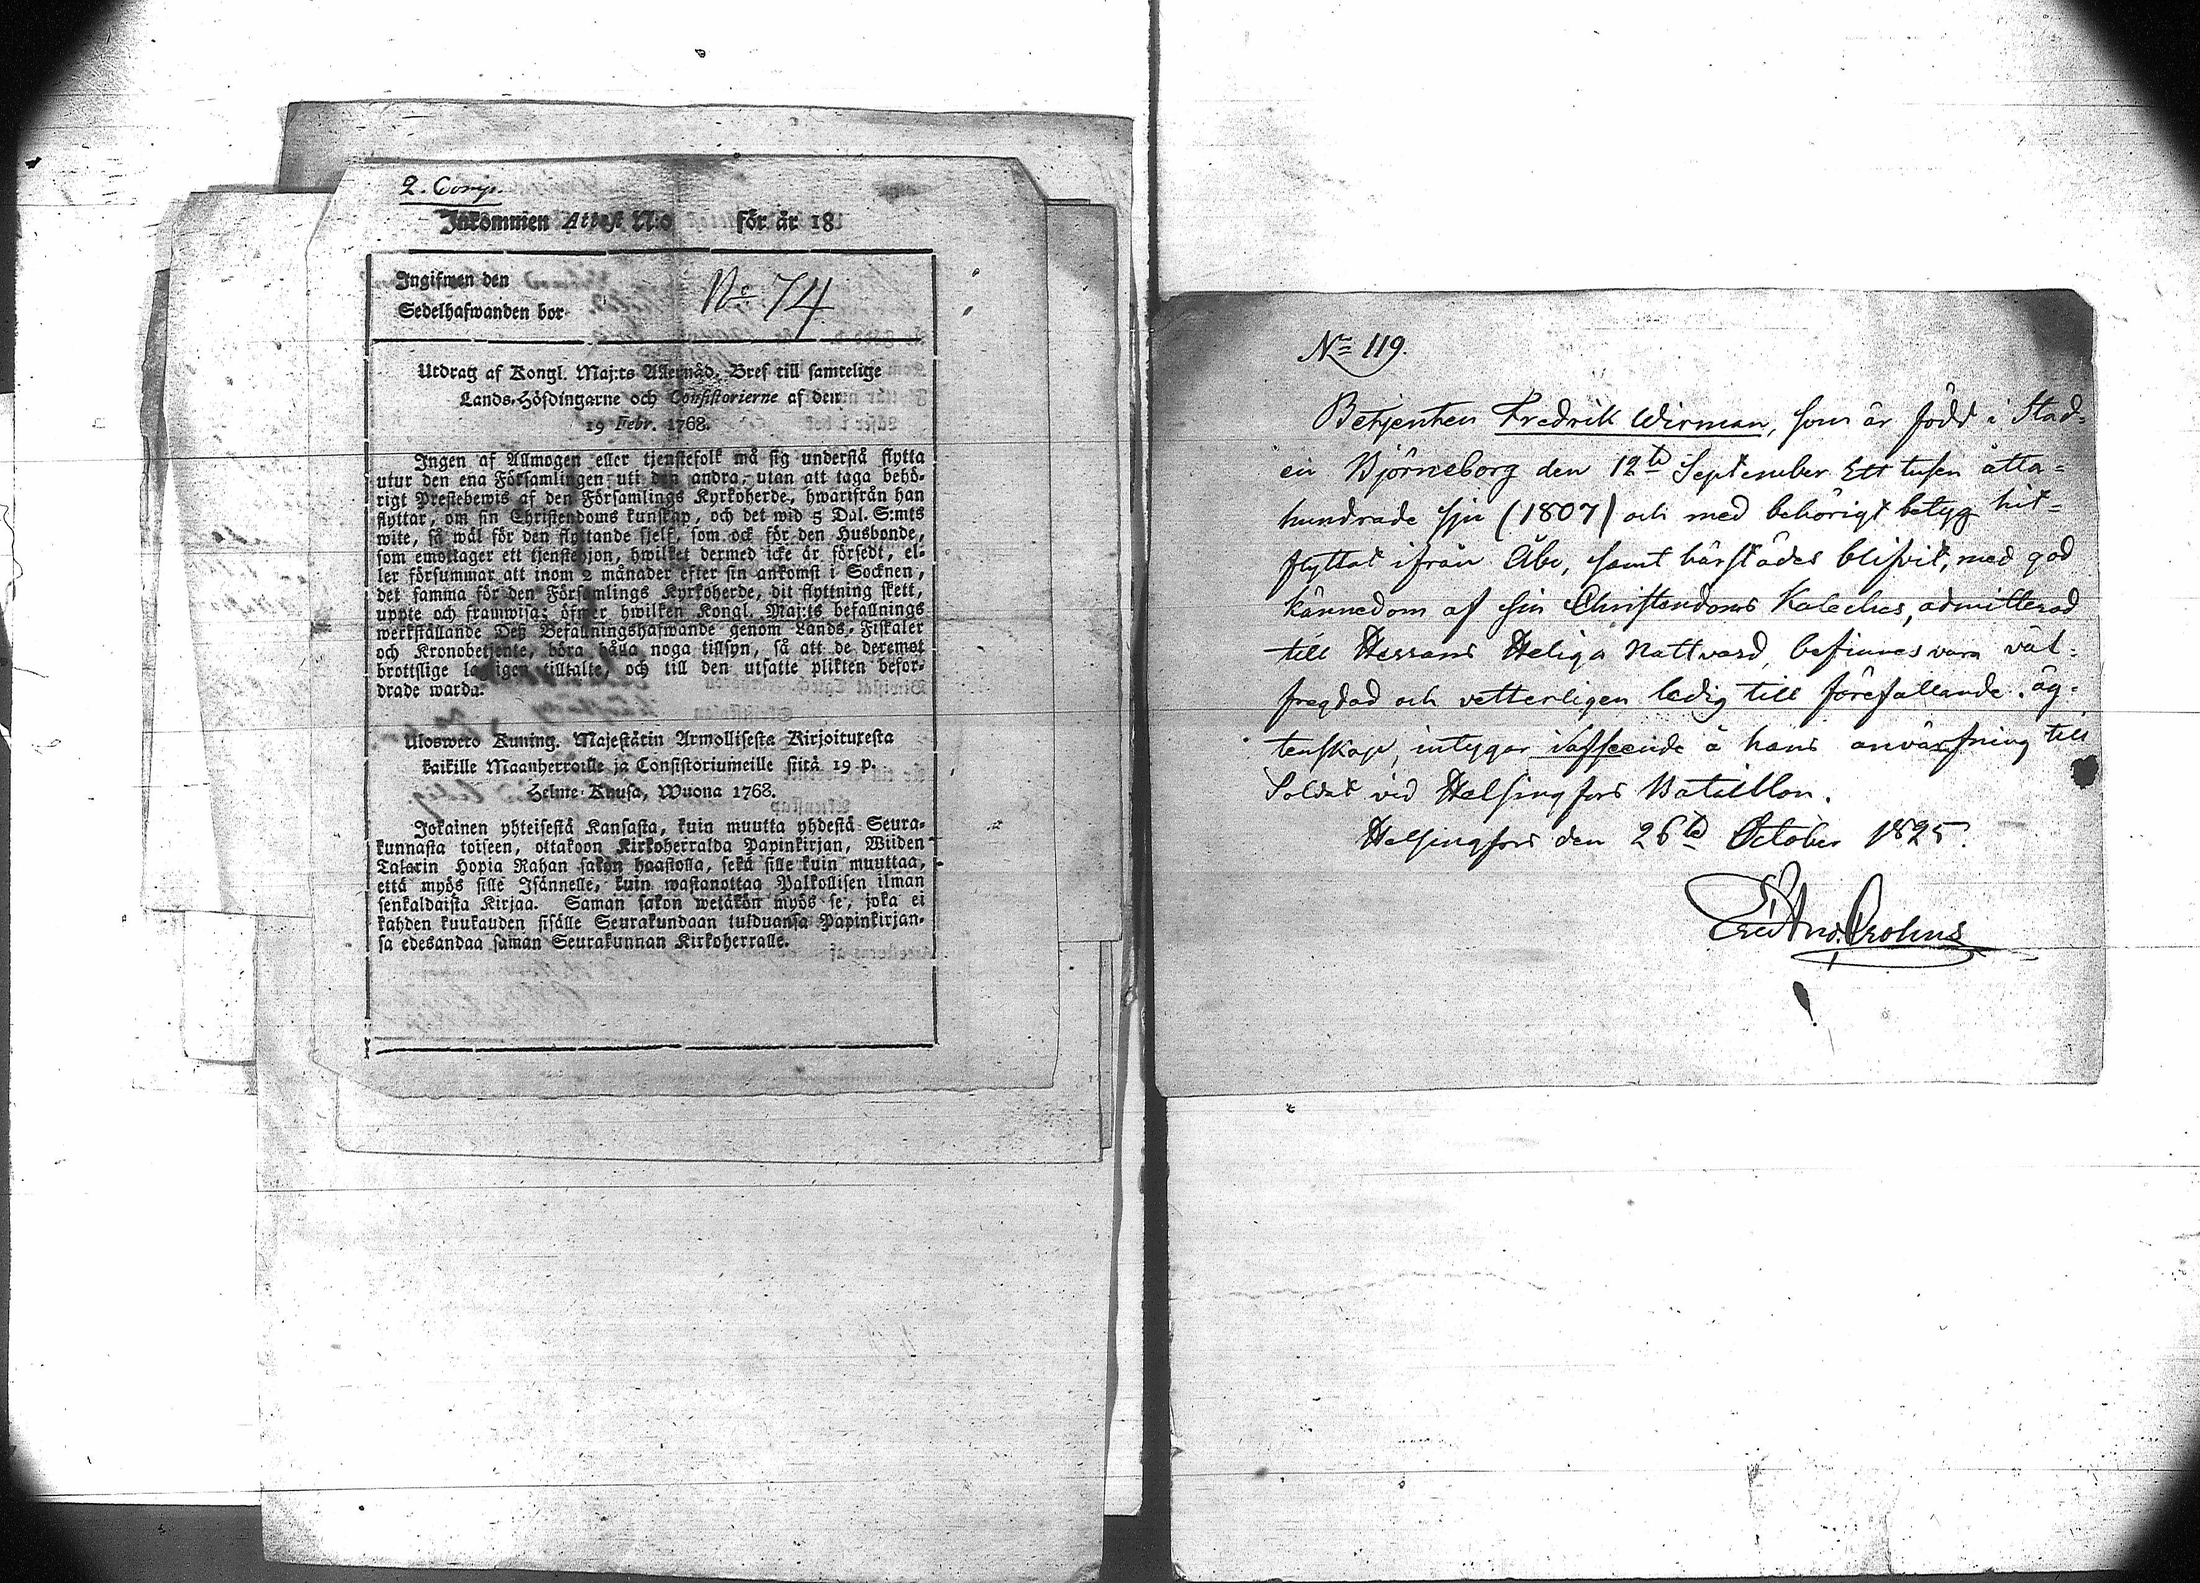 2. Comp.
Inkommen Attest N:o för år 18
Ingifwen den
Sedelhafwanden bor
No 74
Utdrag af Kongl. Maj:ts Allernåd. Bref till samtelige
Lands-Höfdingarne och Consistorierne af den
19 Febr. 1768.
Ingen af Allmogen eller tjenstefolk må sig understå flytta
utur den ena Församlingen uti den andra, utan att taga behö-
rigt Prestebewis af den Församlings Kyrkoherde, hwarifrån han
flyttar, om sin Christendoms kunskap, och det wid 5 Dal. S:mts
wite, så wäl för den flyttande sjelf, som ock för den Husbonde,
som emottager ett tjenstehjon, hwilket dermed icke är försedt, el-
ler försummar att inom 2 månader efter sin ankomst i Socknen,
det samma för den Församlings Kyrkoherde, dit flyttning skett,
uppte och framwisa; öfwer hwilken Kongl. Maj:ts befallnings
werkställande Deß Befallningshafwande genom Lands-Fiskaler
och Kronobetjente, böra hålla noga tillsyn, så att de deremot
brottslige lagligen tilltalte, och till den utsatte plikten befor-
drade warda.
Uloswero Kuning. Majestätin Armollisesta Kirjoituresta
kaikille Maanherroille ja Consistoriumeille siitä 19 p.
Helme-Kuusa, Wuona 1768.
Jokainen yhteisestä Kansasta, kuin muutta yhdestä Seura-
kunnasta toiseen, ottakoon Kirkoherralda Papinkirjan, Wiiden
Talarin Hopia Rahan sakon haastolla, sekä sille kuin muuttaa,
että myös sille Isännelle, kuin wastanottaa Palkollisen ilman
senkaldaista Kirjaa. Saman sakon wetäkön myös se, joka ei
kahden kuukauden sisälle Seurakundaan tulduansa Papinkirjan-
sa edesandaa saman Seurakunnan Kirkoherralle.
No 119.
Betjenten Fredrik Wirman, som är född i Stad-
en Björneborg den 12te September Ett tusen åtta-
hundrade sju (1807) och med behörigt betyg hit-
flyttat ifrån Åbo, samt härstädes blifvit, med god
kännedom af sin Christendoms Kateches, admitterad
till Herrans Heliga Nattvard, befinnes vara väl-
fregdad och vetterligen ledig till förefallande äg-
tenskap, intygar i afseende å hans anvärfning till
Soldat vid Helsingfors Bataillon.
Helsingfors den 26te October 1825.
Crohns